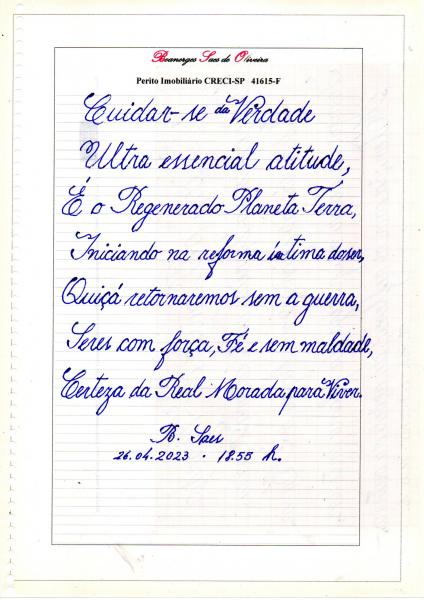 Boanerges Saes de Oliveira
Perito Imobiliário CRECI-SP 41615-F
Cuidar-se da Verdade
Ultra essencial atitude,
É o Regenerado Planeta Terra,
Iniciando na reforma íntima do ser,
Quiçá retornaremos sem a guerra,
Seres com força, Fé e sem maldade,
Certeza da Real Morada para Viver.
B. Saes
26.04.2023 . 18.55 h.